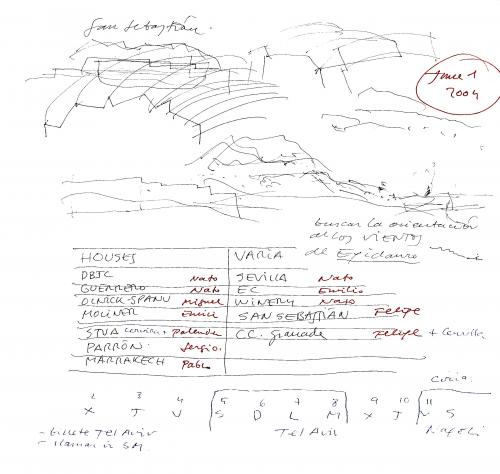 San Sebastián.
June 1
2004
buscar la orientación
de los VIENTOS
de Epidauro
HOUSES VARIA
DBJC Nato SEVILLA Nato
GUERRERO Nato EC Emilio
OLNICK-SPANU Miguel WINERY Nato
MOLINER SAN SEBASTIAN Felipe
C.C. Granada Felipe
PARRÓN. Sergio.
MARRAKECH
2 3 4 5 6 7 8 9 10 11
X J V S D L M X J V S
- billete Tel Aviv Tel Aviv Napoli